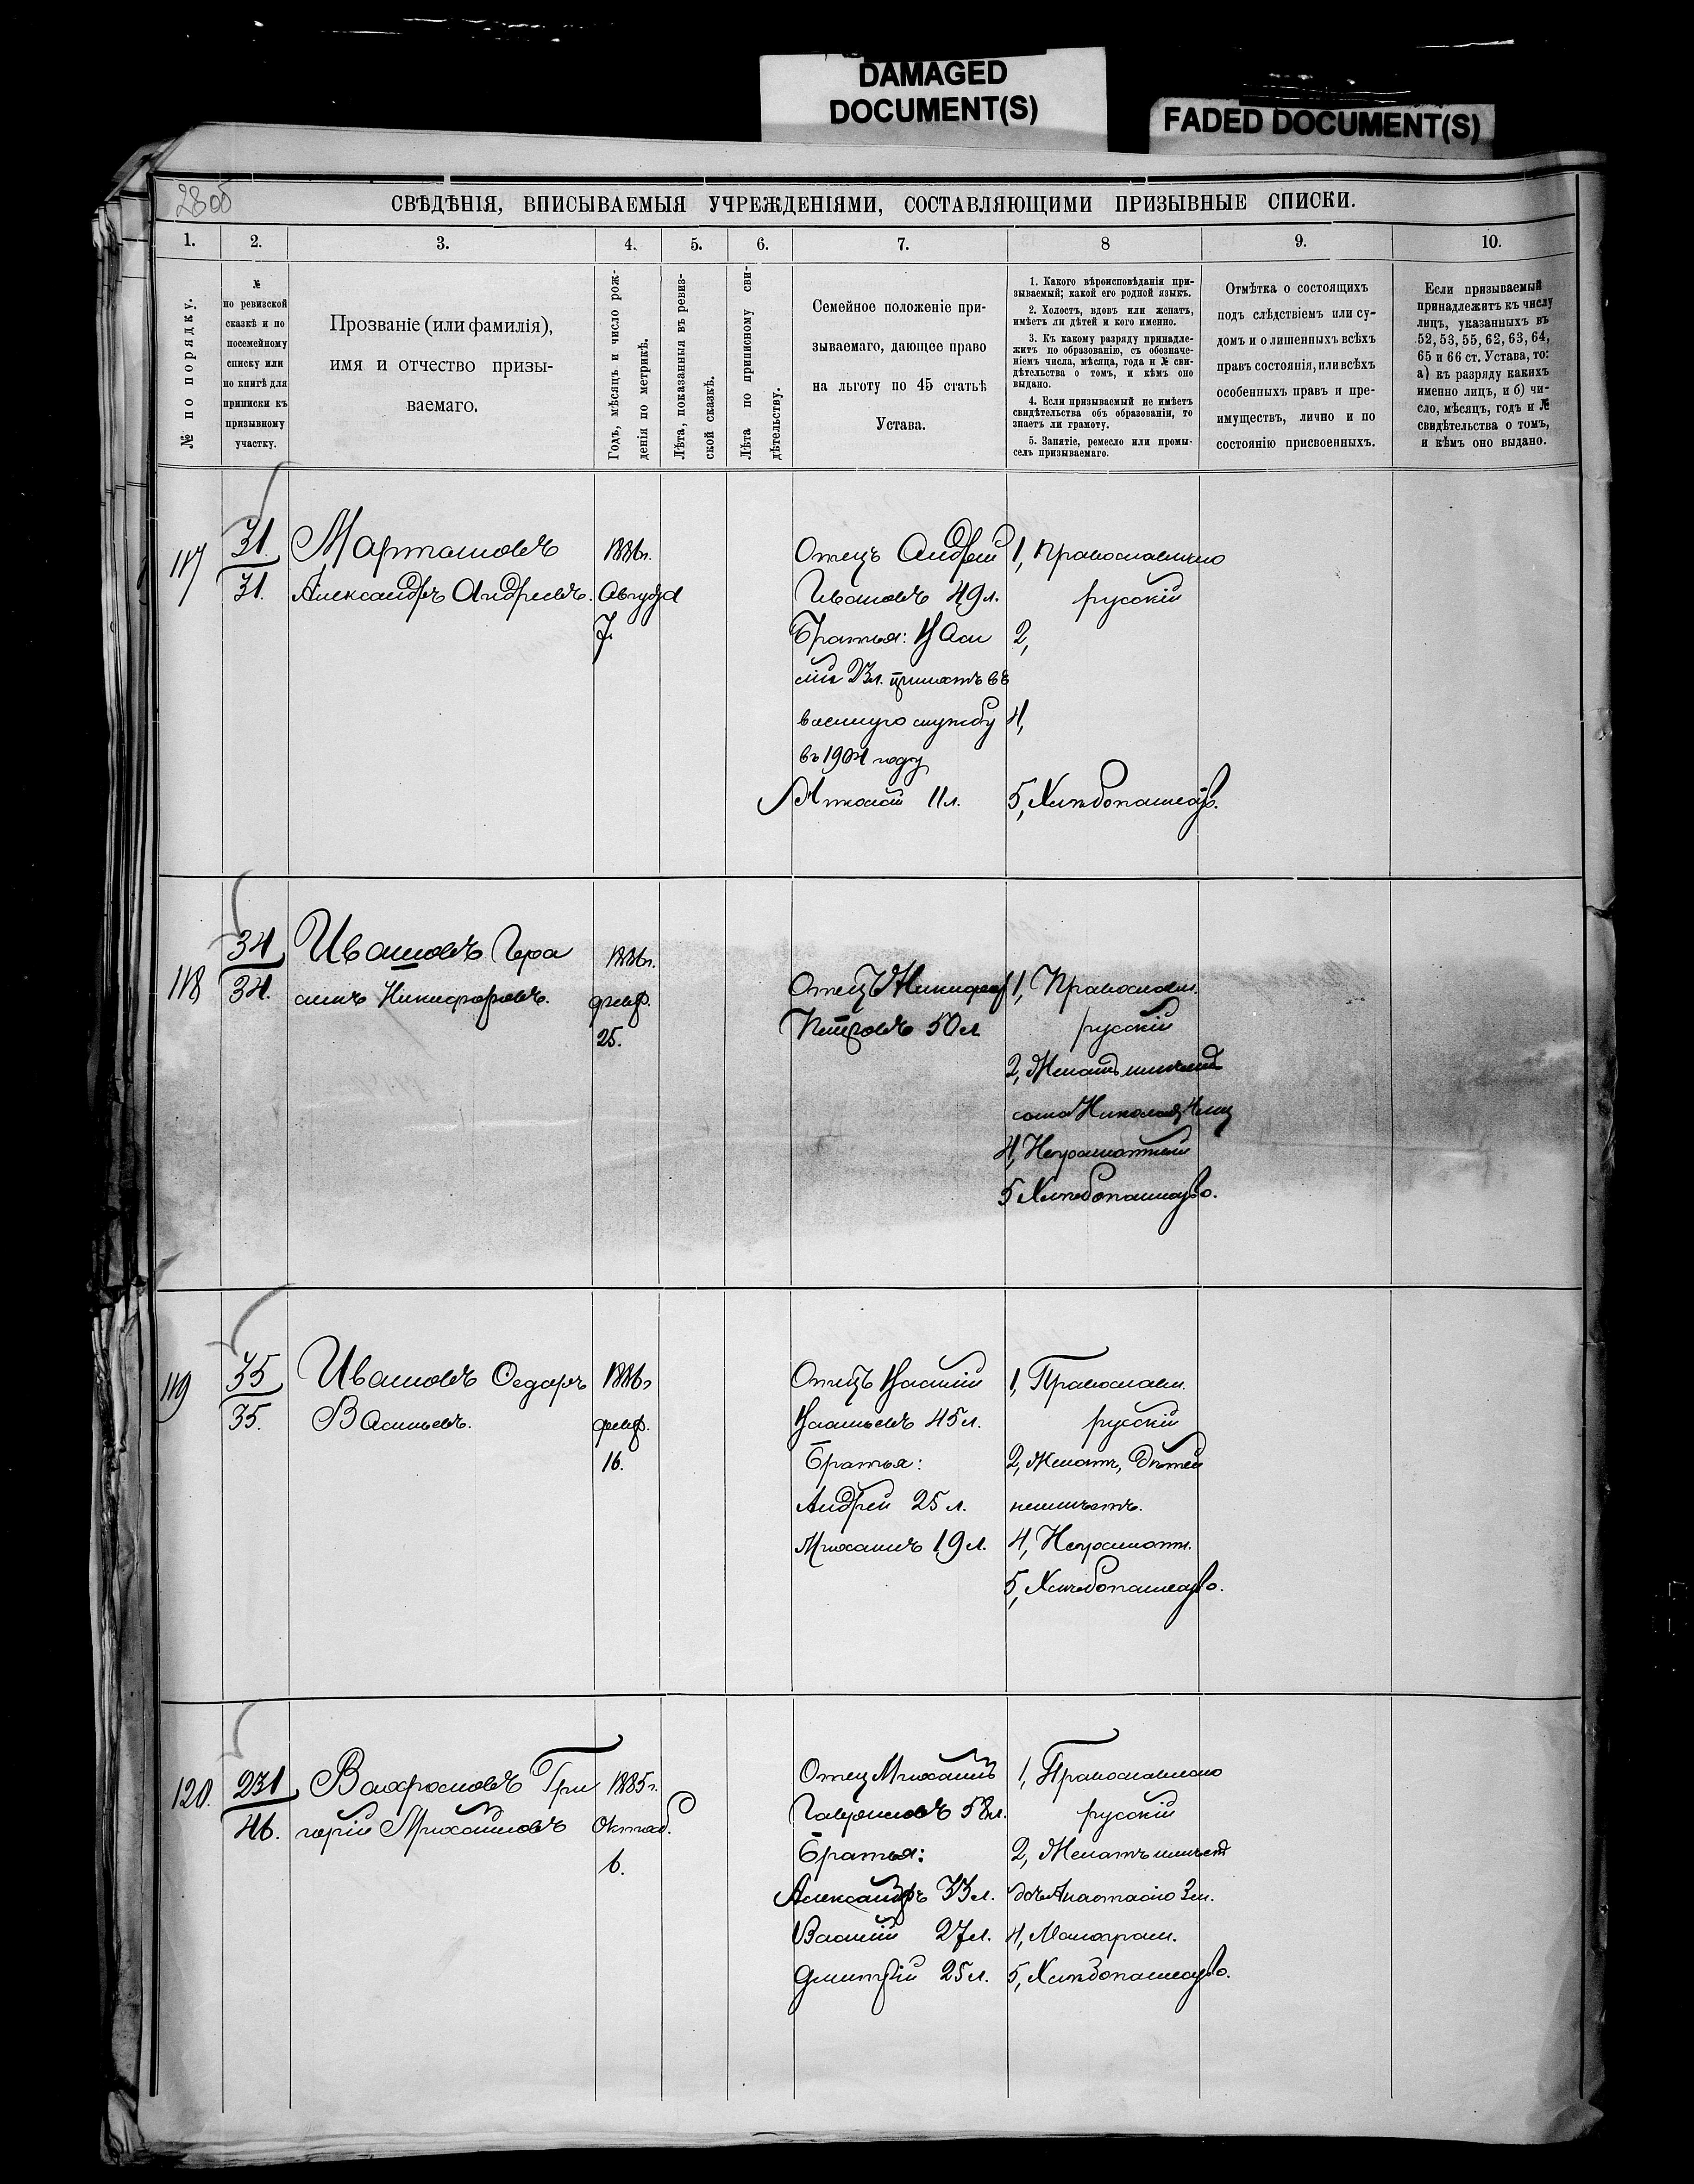 DAMAGED
DOCUMENT(S)
FADED DOCUMENT(S)
СВѢДѢНІЯ, ВПИСЫВАЕМЫЯ УЧРЕЖДЕНІЯМИ, СОСТАВЛЯЮЩИМИ ПРИЗЫВНЫЕ СПИСКИ.
1.
2.
3.
4.
5.
6.
7.
8
9.
10.
№ по порядку.
№
по ревизской
сказкѣ и по
посемейному
списку или
по книгѣ для
приписки къ
призывному
участку.
Прозваніе (или фамилія),
имя и отчество призы-
ваемаго.
Годъ, мѣсяцъ и число рож-
денія по метрикѣ.
Лѣта, показанныя въ ревиз-
ской сказкѣ.
Лѣта по приписному сви-
дѣтельству.
Семейное положеніе при-
зываемаго, дающее право
на льготу по 45 статьѣ
Устава.
1. Какого вѣроисповѣданія при-
зываемый; какой его родной языкъ.
2. Холостъ, вдовъ или женатъ,
имѣетъ ли дѣтей и кого именно.
3. Къ какому разряду принадле-
житъ по образованію, съ обозначе-
ніемъ числа, мѣсяца, года и № сви-
дѣтельства о томъ, и кѣмъ оно
выдано.
4. Если призываемый не имѣетъ
свидѣтельства объ образованіи, то
знаетъ ли грамоту.
5. Занятіе, ремесло или промы-
селъ призываемаго.
Отмѣтка о состоящихъ
подъ слѣдствіемъ или су-
домъ и о лишенныхъ всѣхъ
правъ состоянія, или всѣхъ
особенныхъ правъ и пре-
имуществъ, лично и по
состоянію присвоенныхъ.
Если призываемый
принадлежитъ къ числу
лицъ, указанныхъ въ
52, 53, 55, 62, 63, 64,
65 и 66 ст. Устава, то:
а) къ разряду какихъ
именно лицъ, и б) чи-
сло, мѣсяцъ, годъ и №
свидѣтельства о томъ,
и кѣмъ оно выдано.
117
31
31.
Мартановъ
Александръ Андреевъ.
1886г.
Августа
7.
Отецъ Андрей
Ивановъ 49л.
Братья: Васи
лій 23л. принятъ въ
военную службу
въ 1904 году
11л.
1, Православнаго
русскій
2,
4,
5, Хлѣбопашество.
118
34
34.
Ивановъ Гера
симъ Никифоровъ.
1886г.
февр.
25.
Отецъ Никифоръ
Петровъ 50л
1, Православн.
русскій
2, Женатъ имѣетъ
сына Николая
4, Неграмотный
5 Хлѣбопашество.
119
35
35.
Ивановъ Федоръ
Васильевъ.
1886г
февр.
16.
Отецъ Василій
Васильевъ 45л.
Братья:
Андрей 25л.
Михаилъ 19л.
1, Православн.
русскій
2, Женатъ, дѣтей
неимѣетъ.
4, Неграмотн.
5, Хлѣбопашество.
120.
231
46.
Вахрамовъ Гри
горій Михайловъ
1885г.
Октяб.
6.
Отецъ Михаилъ
Гавриловъ 58л.
Братья:
Александръ 33л.
Василій 27л.
Дмитрій 25л.
1, Православнаго
русскій
2, Женатъ имѣетъ
дочь Анастасію
4, Малограм.
5, Хлѣбопашество.